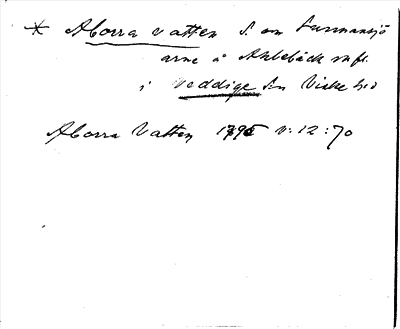 * Aborra vatten S. om Surmansjö
arne å Ahlebäck vid
i Veddige Sn Viske hd
Aborra Vatten 1795 v: 12: 70